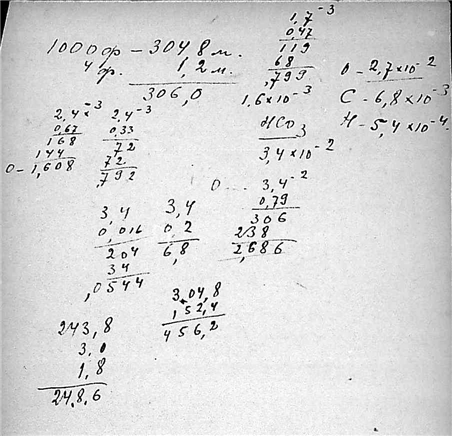 1000 ф — 304,8 м.
4 ф. 1,2 м.
306,0
1,7⁻³
0,47
119
68
,799
1,6×10⁻³
HCO₃
3,4×10⁻²
O — 2,7×10⁻²
C — 6,8×10⁻³
H — 5,4×10⁻⁴
2,4⁻³
0,67
168
144
O — 1,608
2,4⁻³
0,33
72
72
,792
O — 3,4⁻²
0,79
306
238
2,686
3,4
0,016
204
34
,0544
3,4
0,2
6,8
304,8
152,4
456,2
243,8
3,0
1,8
24,8,6